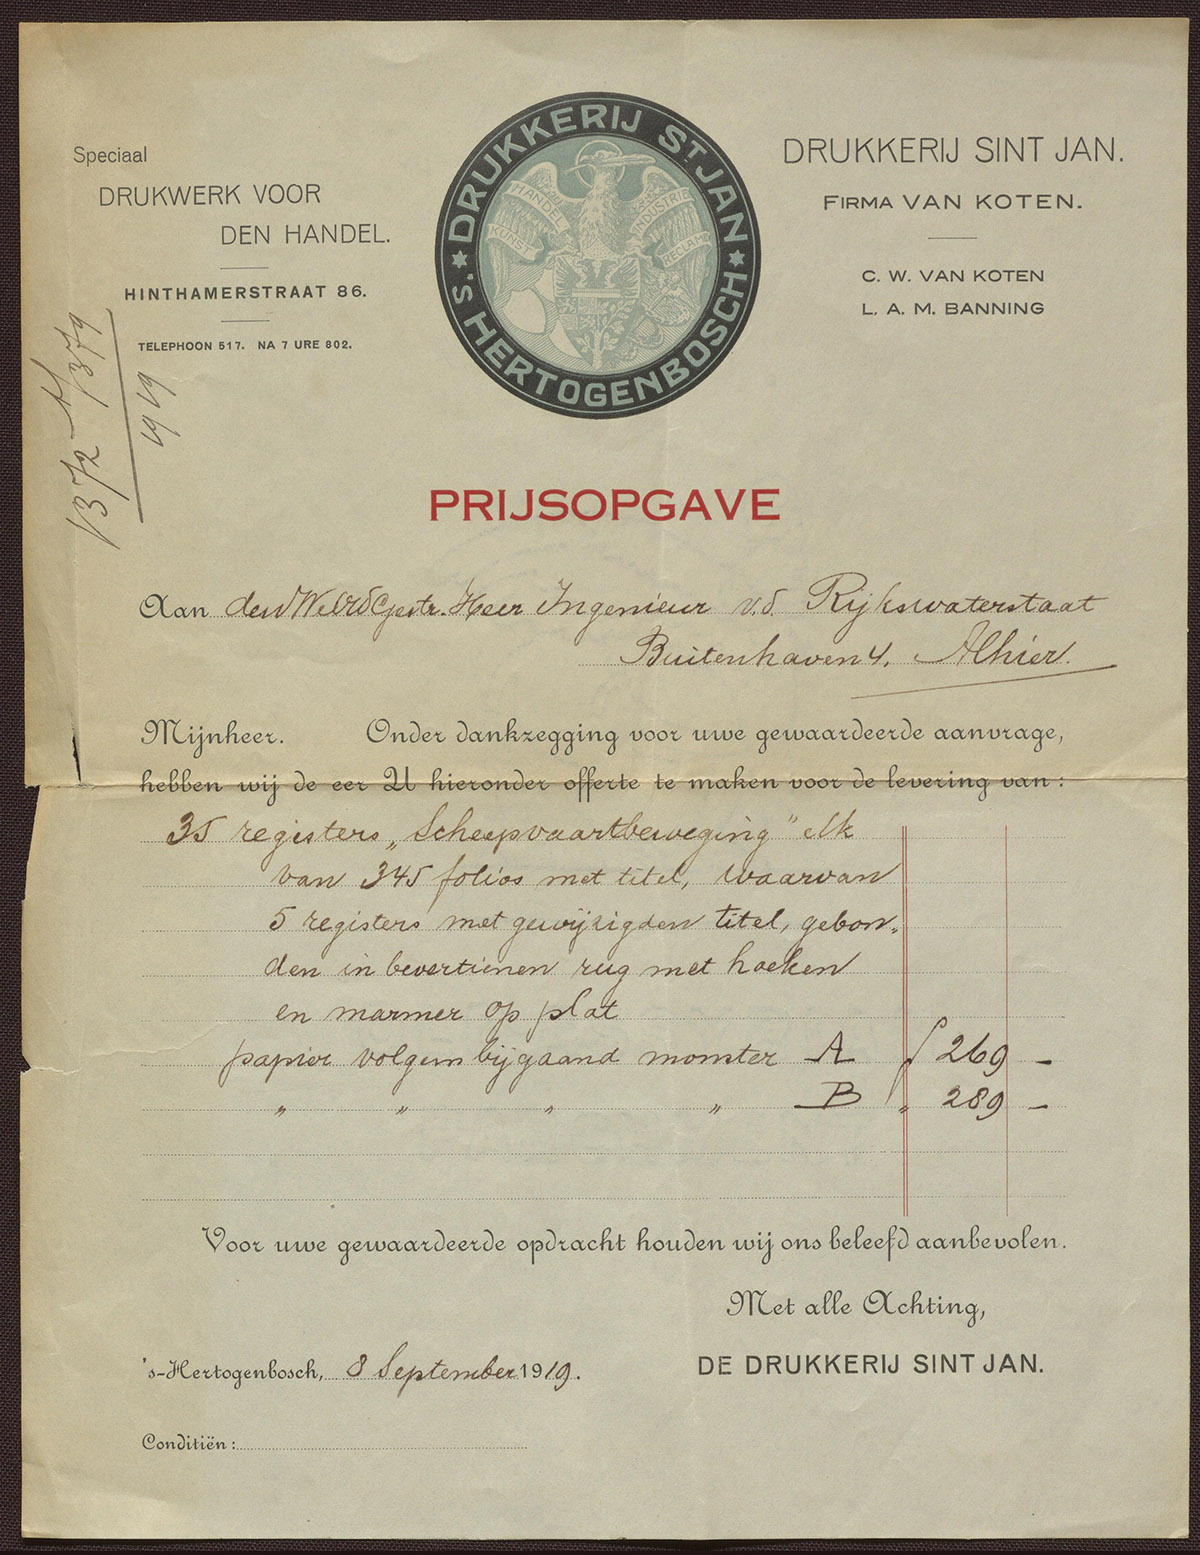 Speciaal
DRUKWERK VOOR
DEN HANDEL.
HINTHAMERSTRAAT 86.
TELEPHOON 517. NA 7 URE 802.
DRUKKERIJ ST JAN
'S HERTOGENBOSCH
HANDEL
KUNST
INDUSTRIE
RECLAME
DRUKKERIJ SINT JAN.
FIRMA VAN KOTEN.
C. W. VAN KOTEN
L. A. M. BANNING
1372
1379
1919
PRIJSOPGAVE
Aan den WelEdGestr. Heer Ingenieur v.d. Rijkswaterstaat
Buitenhaven 4. Alhier.
Mijnheer. Onder dankzegging voor uwe gewaardeerde aanvrage,
hebben wij de eer U hieronder offerte te maken voor de levering van:
35 registers „Scheepvaartbeweging" elk
van 345 folios met titel, waarvan
5 registers met gewijzigden titel, gebon-
den in bevertienen rug met hoeken
en marmer op plat
papier volgens bijgaand monster A f 269 —
„ „ „ „ B „ 289 —
Voor uwe gewaardeerde opdracht houden wij ons beleefd aanbevolen.
Met alle Achting,
's-Hertogenbosch, 8 September 1919.
DE DRUKKERIJ SINT JAN.
Conditiën: